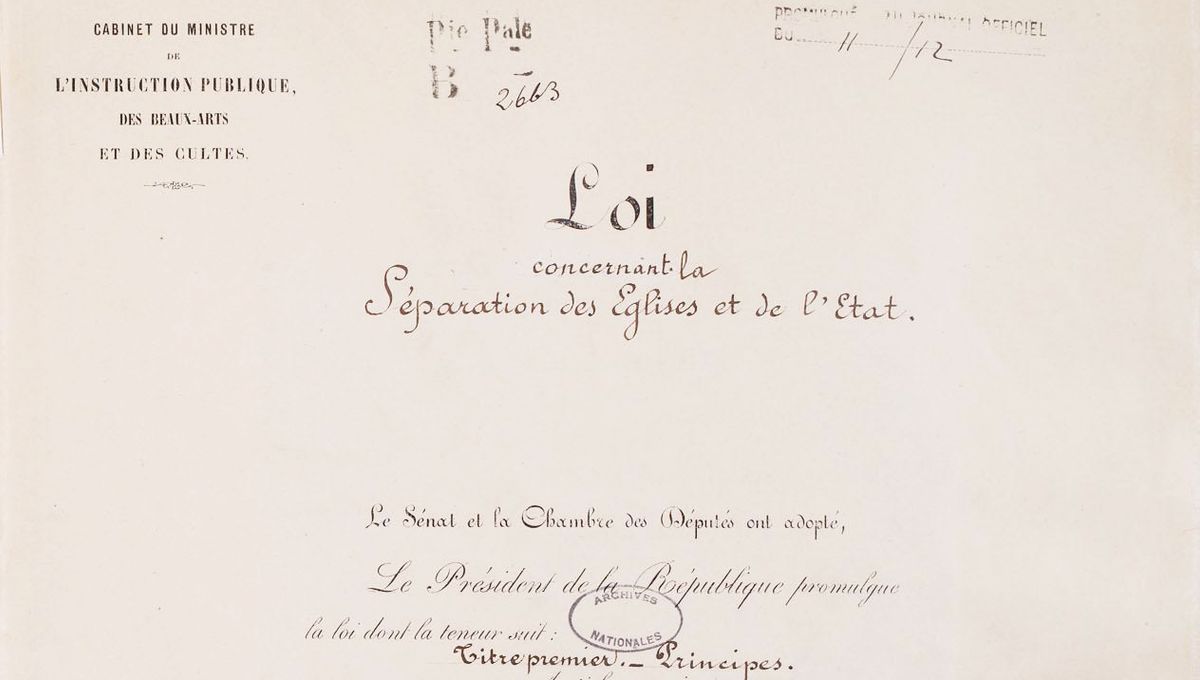 CABINET DU MINISTRE
DE
L'INSTRUCTION PUBLIQUE,
DES BEAUX-ARTS
ET DES CULTES.
Pale
B 2663
PROMULGUÉ AU JOURNAL OFFICIEL
DU 11/12
Loi
concernant la
Séparation des Eglises et de l'Etat.
Le Sénat et la Chambre des Députés ont adopté,
Le Président de la République promulgue
la loi dont la teneur suit :
ARCHIVES
NATIONALES
Titre premier._ Principes.